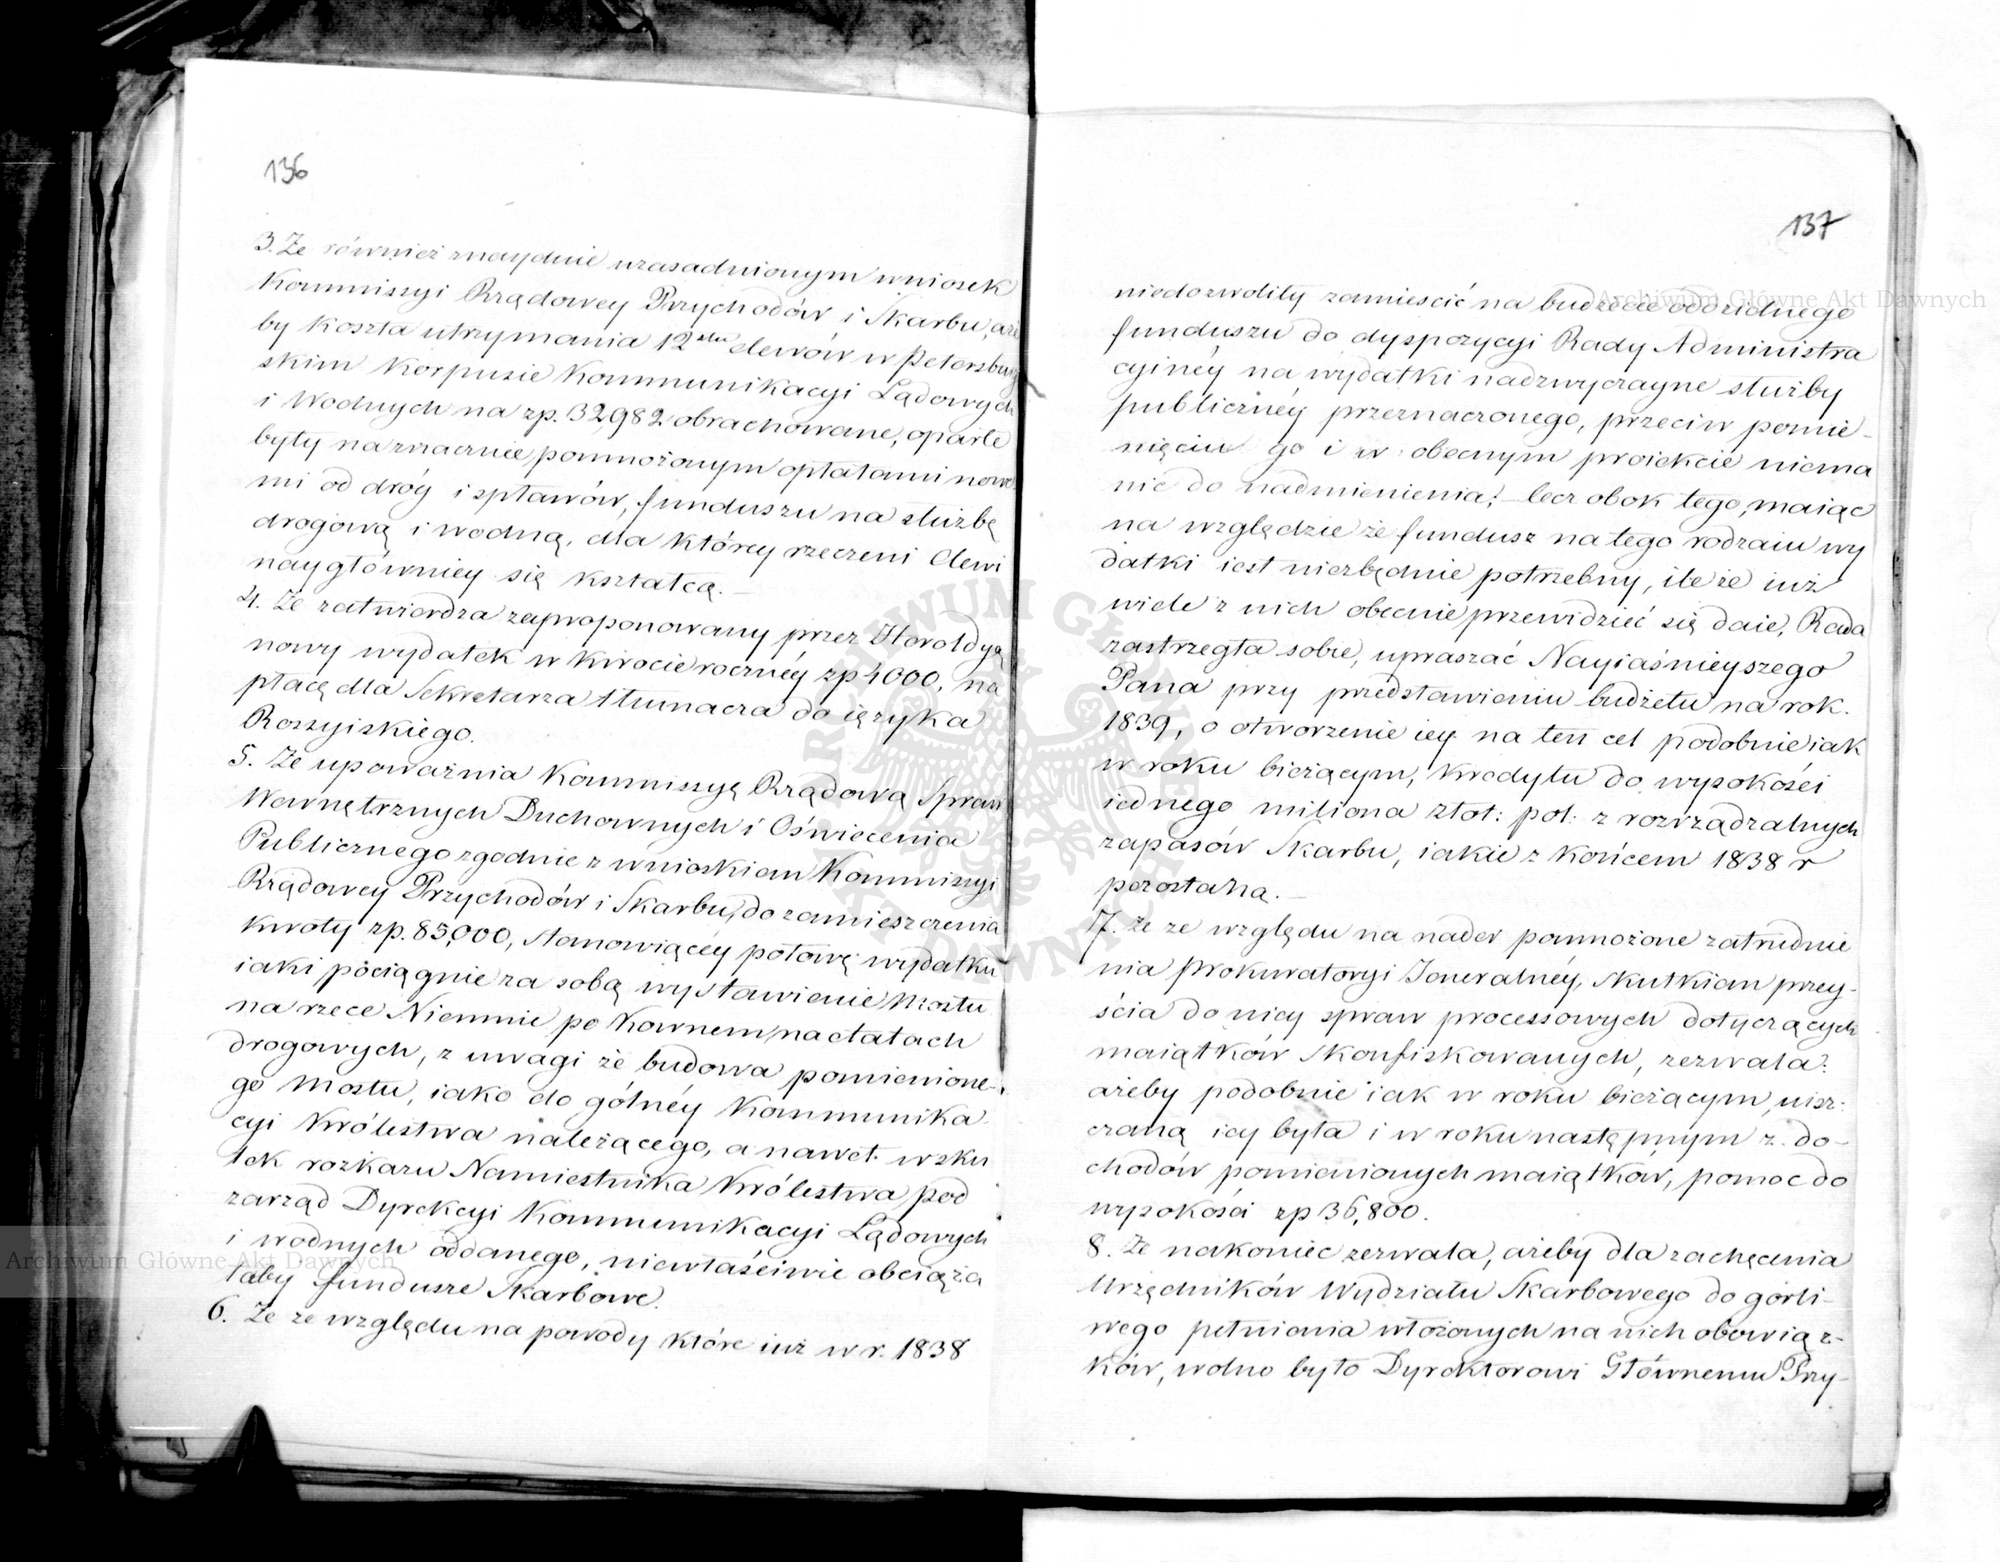 136
3. Że również znayduie uzasadnionym wniosek
Kommissyi Rządowey Przychodów i Skarbu, aże
by koszta utrzymania 12stu elewów w Petersburg
skim Korpusie Kommunikacyi Lądowych
i Wodnych na zp. 32,982 obrachowane, oparte
były na znacznie pomnożonym opłatami nowe
mi od dróg i spławów, funduszu na służbę
drogową i wodną, dla którey rzeczeni Elewi
naygłówniey się kształcą. —
4. Że zatwierdza zaproponowany przez Heroldyą
nowy wydatek w kwocie roczney zp 4000, na
płacę dla Sekretarza tłumacza do ięzyka
Rossyiskiego.
5. Że upoważnia Kommissyę Rządową Spraw
Wewnętrznych Duchownych i Oświecenia
Publicznego zgodnie z wnioskiem Kommissyi
Rządowey Przychodów i Skarbu, do zamieszczenia
kwoty zp. 85,000, stanowiącéy połowę wydatku
iaki pociągnie za sobą wystawienie Mostu
na rzece Niemnie pe Kownem, na etatach
drogowych, z uwagi że budowa pomienione-
go Mostu, iako do gólnéy Kommunika-
cyi Królestwa należącego, a nawet w sku
tek rozkazu Namiestnika Królestwa pod
zarząd Dyrekcyi Kommunikacyi Lądowych
i wodnych oddanego, niewłaściwie obciąża
łaby fundusze Skarbowe.
6. Że ze względu na powody które iuż w r. 1838
137
niedozwoliły zamieścić na budżecie oddzielnego
funduszu do dyspozycyi Rady Administra
cyinéy na wydatki nadzwyczayne służby
publicznéy przeznaczonego, przeciw pomie-
nięciu go i w obecnym proiekcie niema
nic do nadmienienia; – lecz obok tego, maiąc
na względzie że fundusz na tego rodzaiu wy
datki iest niezbędnie potrzebny, ile że iuż
wiele z nich obecnie przewidzieć się daie, Rada
zastrzegła sobie, upraszać Nayiaśnieyszego
Pana przy przedstawieniu budżetu na rok
1839, o otworzenie iey na ten cel podobnie iak
w roku bieżącym, kredytu do wysokości
iednego miliona złot: pol: z rozrządzalnych
zapasów Skarbu, iakie z końcem 1838 r
pozostaną. —
7. Że ze względu na nader pomnożone zatrudnie
nia Prokuratoryi Jeneralnéy, skutkiem przey-
ścia do niey spraw processowych dotyczących
maiątków skonfiskowanych, zezwala:
ażeby podobnie iak w roku bieżącym, uisz-
czaną iey była i w roku następnym z do-
chodów pomienionych maiątków, pomoc do
wysokości zp 36,800.
8. Że nakoniec zezwala, ażeby dla zachęcenia
Urzędników Wydziału Skarbowego do gorli-
wego pełnienia włożonych na nich obowiąz-
ków, wolno było Dyrektorowi Głównemu Przy-
Archiwum Główne Akt Dawnych
Archiwum Główne Akt Dawnych
ARCHIWUM GŁÓWNE AKT DAWNYCH